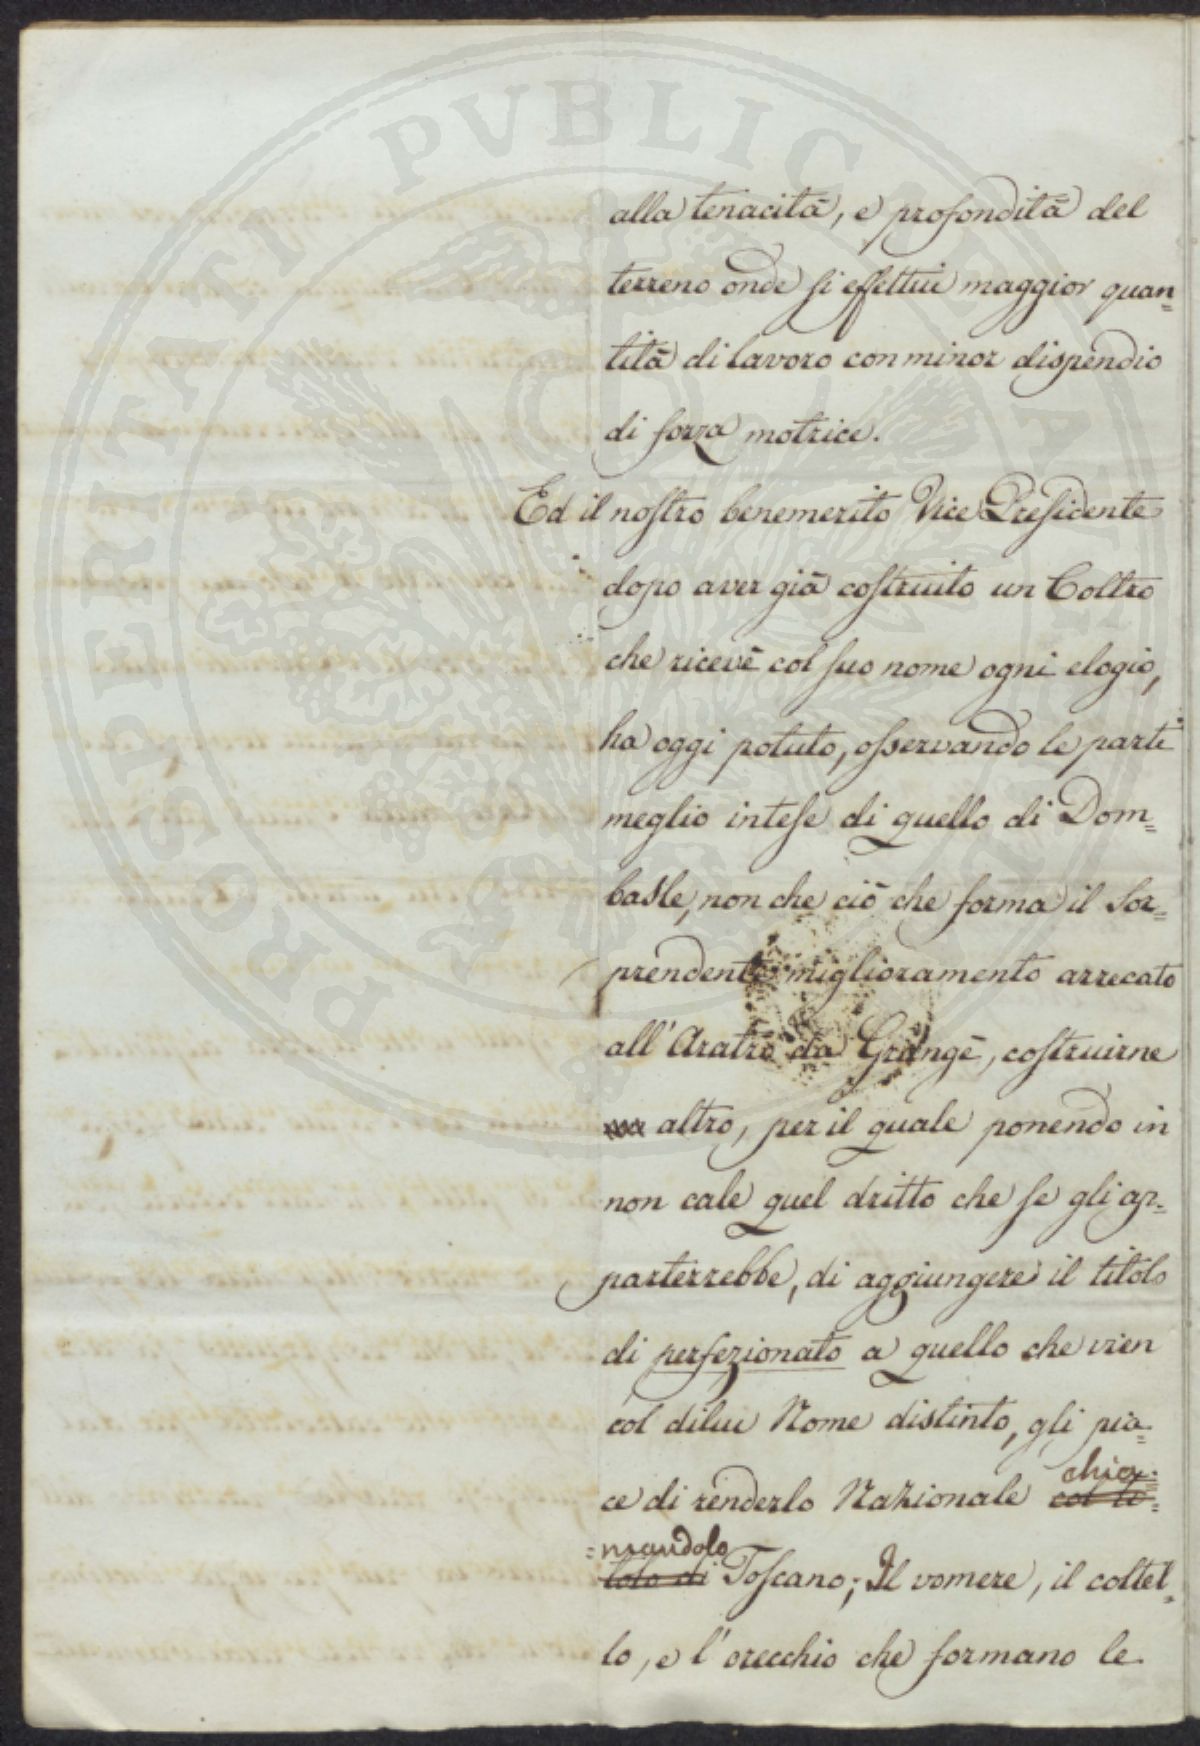 PROSPERITATI PVBLICAE AVGENDAE
alla tenacità, e profondità del
terreno onde si effettui maggior quan=
tità di lavoro con minor dispendio
di forza motrice.
Ed il nostro benemerito Vice Presidente
dopo aver già costruito un Coltro
che ricevè col suo nome ogni elogio,
ha oggi potuto, osservando le parti
meglio intese di quello di Dom=
basle, non che ciò che forma il sor=
prendente miglioramento arrecato
all'Aratro da Grangè, costruirne
altro, per il quale ponendo in
non cale quel dritto che se gli ap=
parterrebbe, di aggiungere il titolo
di perfezionato a quello che vien
col dilui Nome distinto, gli pia=
ce di renderlo Nazionale col ti= chia=
=mandolo tolo di Toscano; Il vomere, il coltel=
lo, e l'orecchio che formano le